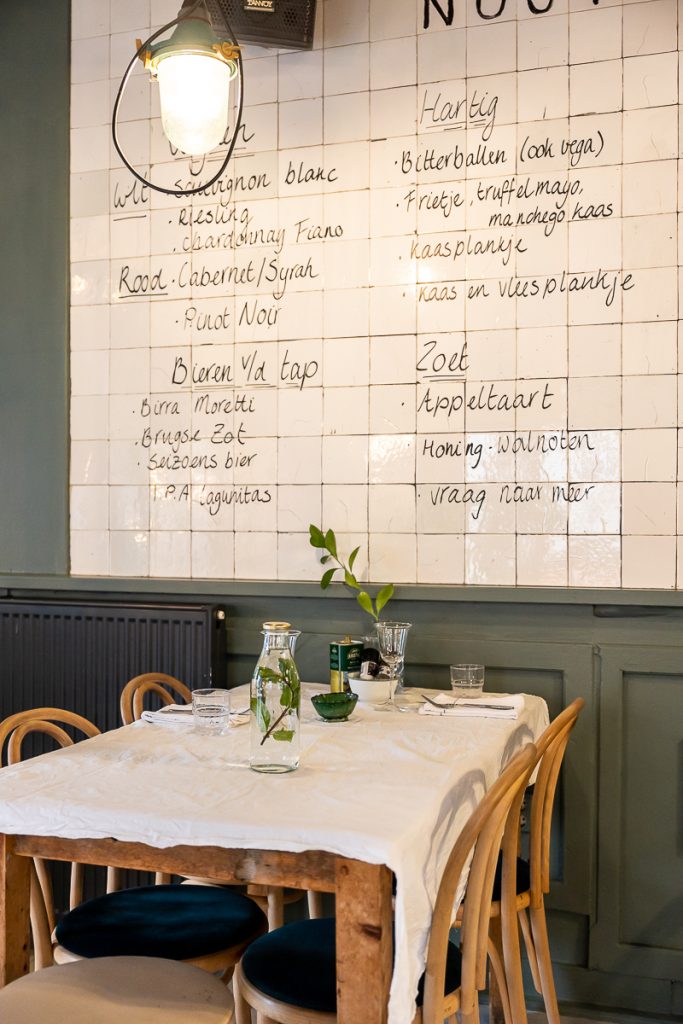 TANNOY
Wit · Sauvignon blanc
· Riesling
· Chardonnay Fiano
Rood · Cabernet/Syrah
· Pinot Noir
Bieren v/d tap
· Birra Moretti
· Brugse Zot
· Seizoens bier
· I.P.A Lagunitas
Hartig
· Bitterballen (ook vega)
· Frietje, truffelmayo,
manchego kaas
· kaasplankje
· kaas en vleesplankje
Zoet
· Appeltaart
Honing - Walnoten
· vraag naar meer